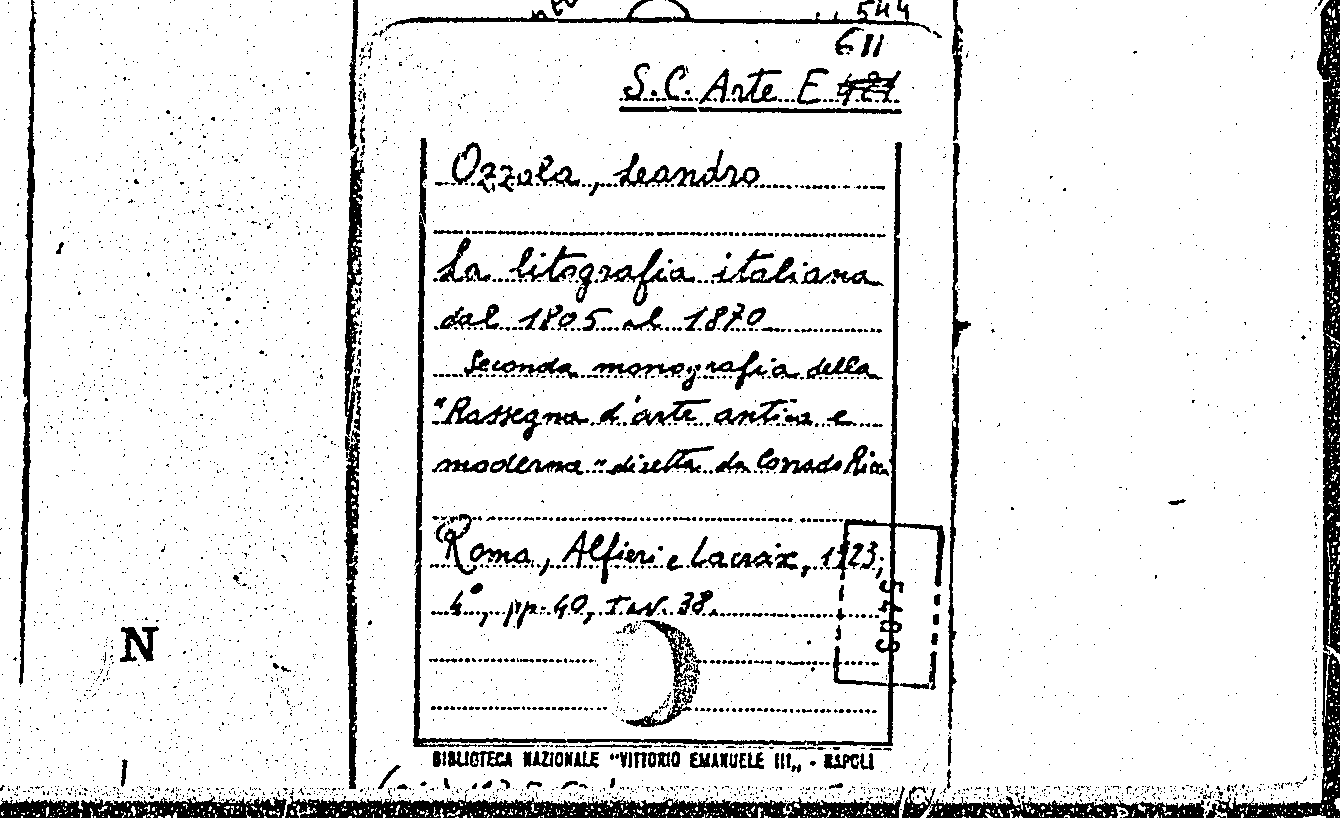 544
611
S.C. Arte E
Ozzola, Leandro
La litografia italiana
dal 1805 al 1870
Seconda monografia della
"Rassegna d'arte antica e
moderna" diretta da Corrado Ricci
Roma, Alfieri e Lacroix, 1923;
4°, pp. 40, tav. 38.
N
BIBLIOTECA NAZIONALE "VITTORIO EMANUELE III„ - NAPOLI